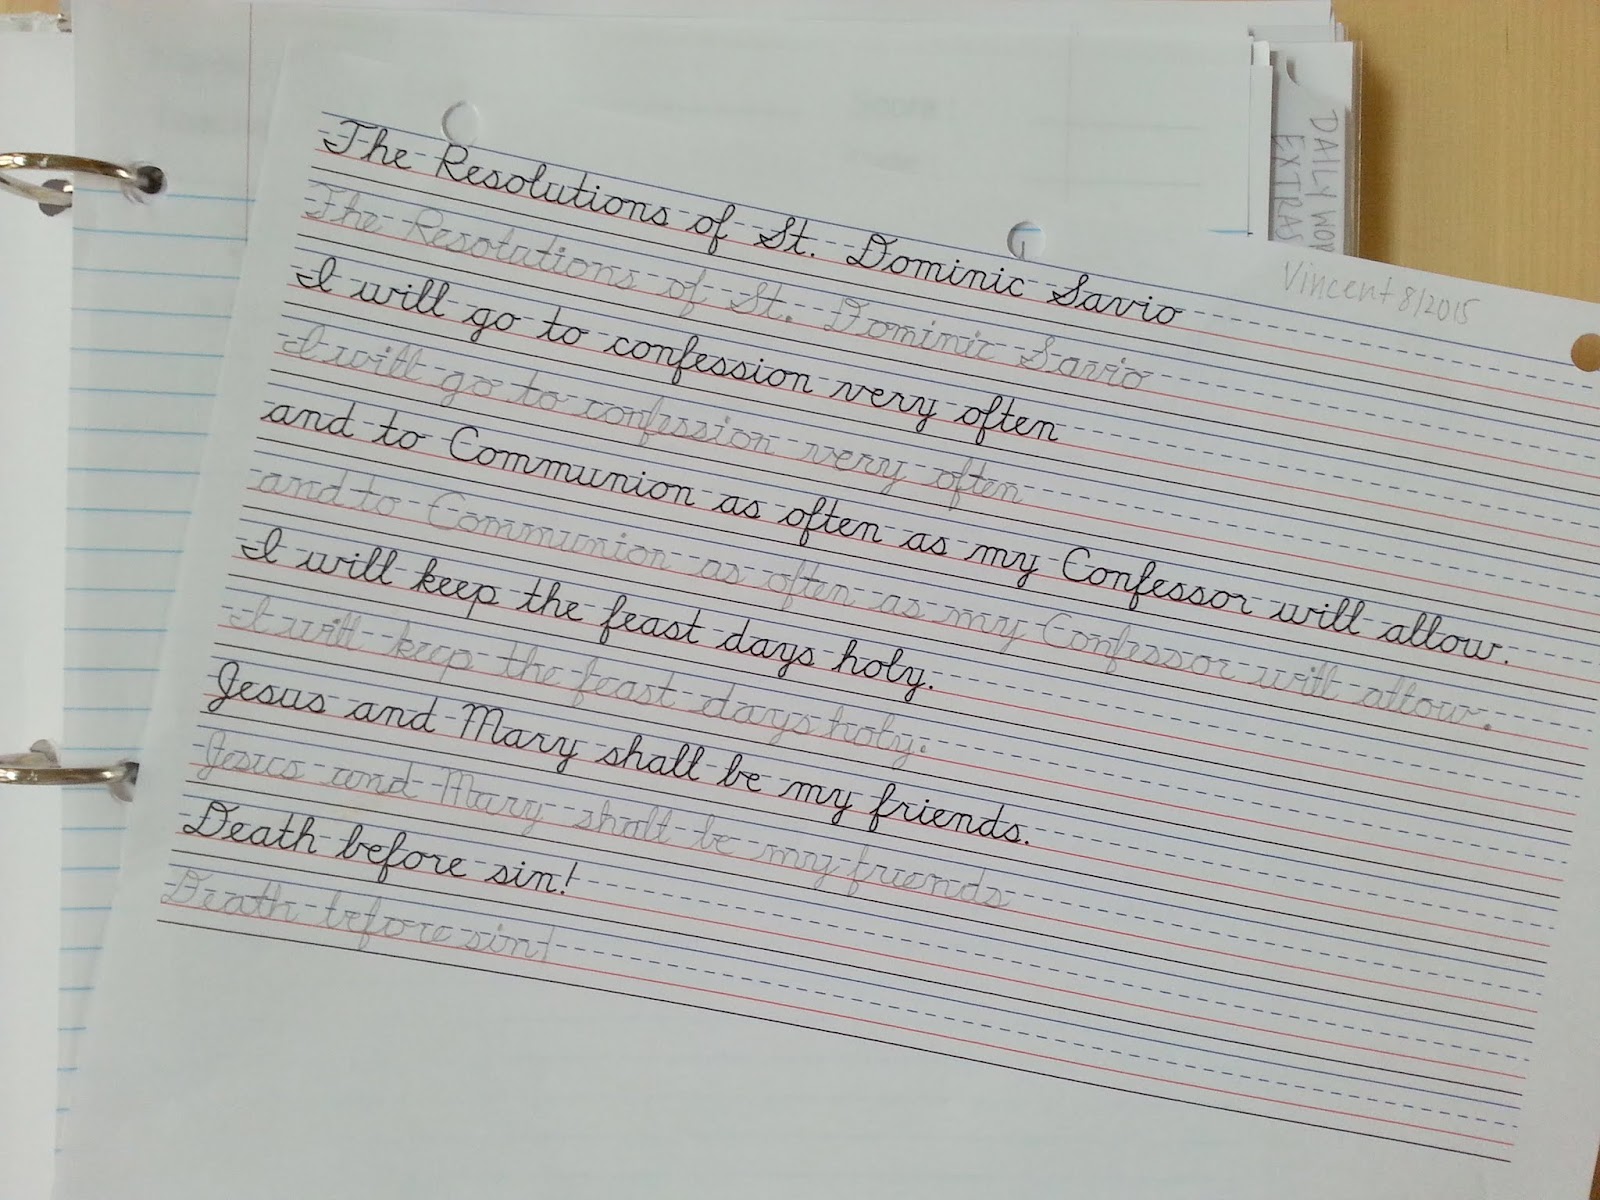 The Resolutions of St. Dominic Savio
The Resolutions of St. Dominic Savio
I will go to confession very often
I will go to confession very often
and to Communion as often as my Confessor will allow.
and to Communion as often as my Confessor will allow.
I will keep the feast days holy.
I will keep the feast days holy.
Jesus and Mary shall be my friends.
Jesus and Mary shall be my friends
Death before sin!
Death before sin!
Vincent 8/2015
DAILY WOR
EXTRAS